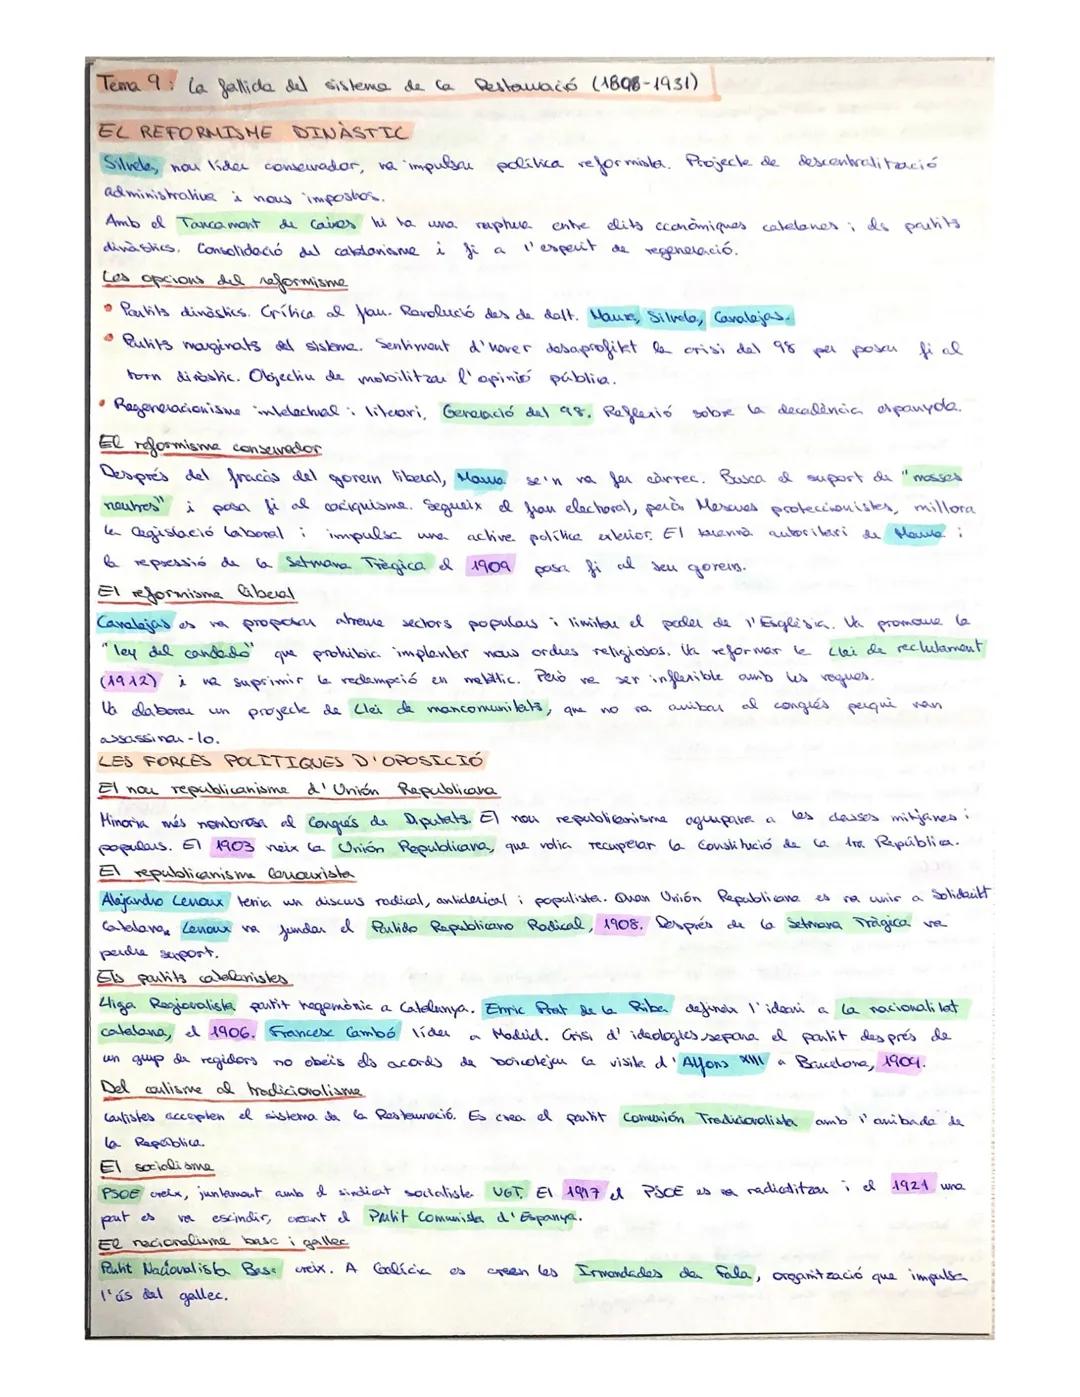 Tema 9: La fallida del sistema de la Restauració (1898-1931)
EL REFORMISME DINÀSTIC
Silvela, nou líder conservador, va impulsar política reformista. Projecte de descentralització
administrativa i nous impostos.
Amb el Tancament de Caixes hi ha una ruptura entre elits econòmiques catalanes i els partits
dinàstics. Consolidació del catalanisme i fi a l'esperit de regeneració.
Les opcions del reformisme
• Partits dinàstics. Crítica al frau. Revolució des de dalt. Maura, Silvela, Canalejas.
• Partits marginats del sistema. Sentiment d'haver desaprofitat la crisi del 98 per posar fi al
torn dinàstic. Objectiu de mobilitzar l'opinió pública.
• Regeneracionisme intelectual i literari, Generació del 98. Reflexió sobre la decadència espanyola.
El reformisme conservador
Després del fracàs del govern liberal, Maura se'n va fer càrrec. Busca el suport de "masses
neutres" i posa fi al caciquisme. Segueix el frau electoral, però Mesures proteccionistes, millora
la legislació laboral i impulsa una activa política exterior. El tarannà autoritari de Maura i
la repressió de la Setmana Tràgica el 1909 posa fi al seu govern.
El reformisme liberal
Canalejas es va proposar atreure sectors populars i limitar el poder de l'Església. Va promoure la
"ley del candado" que prohibia implantar nous ordres religiosos. Va reformar la Llei de reclutament
(1912) i va suprimir la redempció en metàl·lic. Però va ser inflexible amb les vagues.
Va elaborar un projecte de Llei de mancomunitats, que no va arribar al congrés perquè van
assassinar-lo.
LES FORCES POLÍTIQUES D'OPOSICIÓ
El nou republicanisme d'Unión Republicana
Minoria més nombrosa al Congrés de Diputats. El nou republicanisme agrupava a les classes mitjanes i
populars. El 1903 neix la Unión Republicana, que volia recuperar la Constitució de la 1ra República.
El republicanisme lerrouxista
Alejandro Lerroux tenia un discurs radical, anticlerical i populista. Quan Unión Republicana es va unir a Solidaritat
Catalana, Lerroux va fundar el Partido Republicano Radical, 1908. Després de la Setmana Tràgica va
perdre suport.
Els partits catalanistes
Lliga Regionalista, partit hegemònic a Catalunya. Enric Prat de la Riba defineix l'ideari a La nacionalitat
catalana, el 1906. Francesc Cambó líder a Madrid. Crisi d'ideologies separa el partit després de
un grup de regidors no obeís els acords de boicotejar la visita d'Alfons XIII a Barcelona, 1904.
Del carlisme al tradicionalisme
Carlistes accepten el sistema de la Restauració. Es crea el partit Comunión Tradicionalista amb l'arribada de
la República.
El socialisme
PSOE creix, juntament amb el sindicat socialista UGT. El 1917 el PSOE es va radicalitzar i el 1921 una
part es va escindir, creant el Partit Comunista d'Espanya.
El nacionalisme basc i gallec
Partit Nacionalista Basc creix. A Galícia es creen les Irmandades da Fala, organització que impulsa
l'ús del gallec.